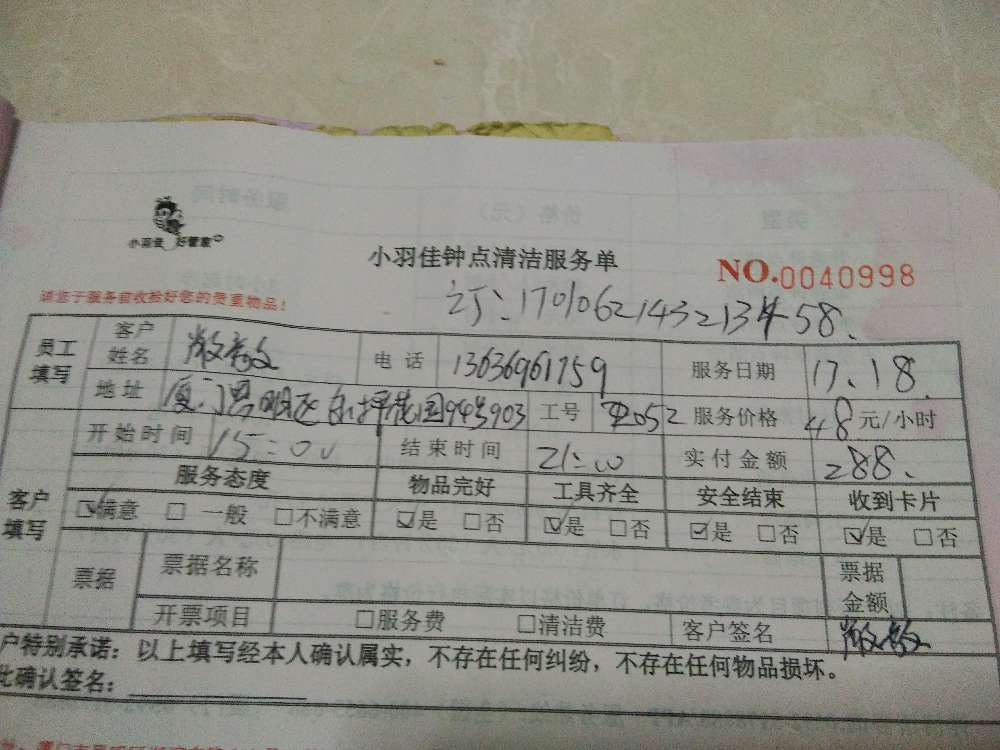 小羽佳 好管家
小羽佳钟点清洁服务单
NO.0040998
请您于服务前收拾好您的贵重物品!
员工填写 客户姓名 电话 13636961759 服务日期 17.18
地址 工号 服务价格 48元/小时
开始时间 15:00 结束时间 21:00 实付金额 288.
客户填写 服务态度 物品完好 工具齐全 安全结束 收到卡片
☑满意 □一般 □不满意 ☑是 □否 ☑是 □否 ☑是 □否 ☑是 □否
票据 票据名称 票据金额
开票项目 □服务费 □清洁费 客户签名
户特别承诺：以上填写经本人确认属实，不存在任何纠纷，不存在任何物品损坏。
此确认签名：